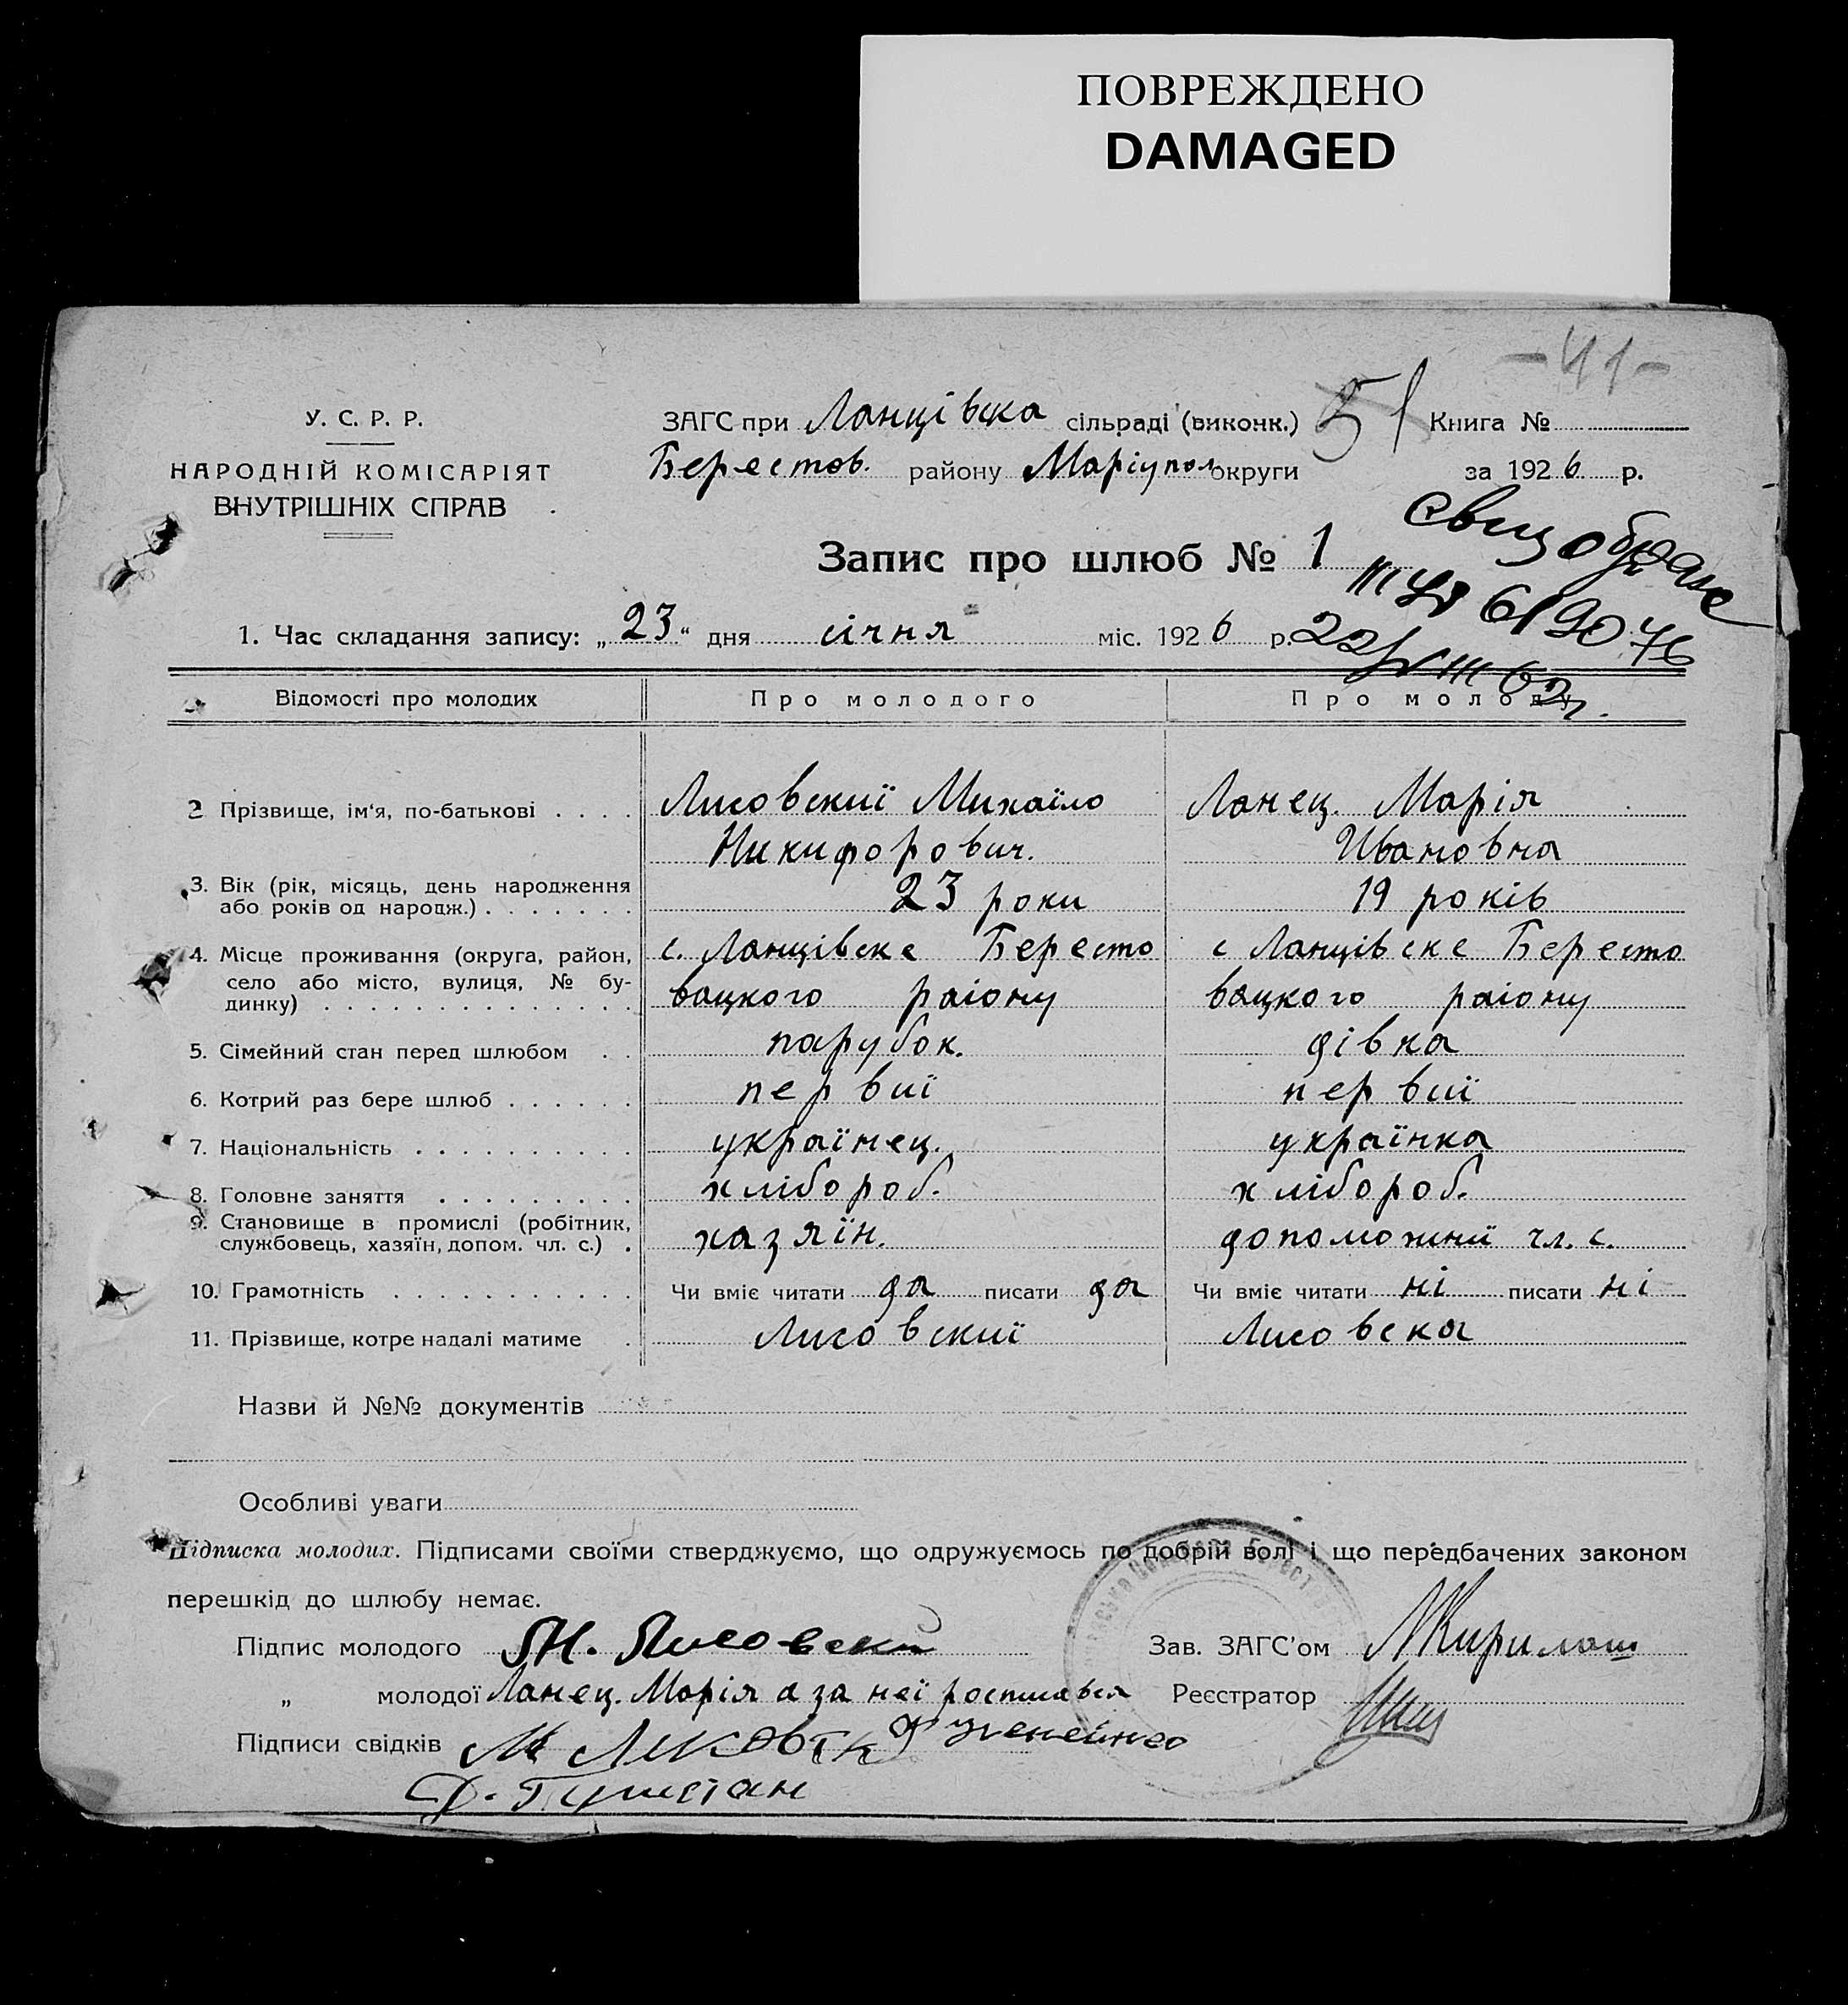 ПОВРЕЖДЕНО
DAMAGED
-41-
У. С. Р. Р.
НАРОДНІЙ КОМІСАРІЯТ
ВНУТРІШНІХ СПРАВ
ЗАГС при Ланцівска сільраді (виконк.) 51 Книга №
Берестов. району Маріупол округи за 1926 р.
Запис про шлюб № 1
свид
III 61
1. Час складання запису: „23“ дня січня міс. 1926 р.
22
Відомості про молодих Про молодого Про молоду
2 Прізвище, ім‘я, по-батькові . . . . Лисовскиї Михаїло Ланец. Марія
Никифорович. Ивановна
3. Вік (рік, місяць, день народження
або років од народж.) . . . . . . . 23 роки 19 років
4. Місце проживання (округа, район, с. Ланцівске Бересто с Ланцівске Бересто
село або місто, вулиця, № бу-
динку) . . . . . . . . . . . . . . вацкого раіону вацкого раіону
5. Сімейний стан перед шлюбом . . парубок. дівка
6. Котрий раз бере шлюб . . . . . . первиї первиї
7. Національність . . . . . . . . . . українец. українка
8. Головне заняття . . . . . . . . . хлібороб. хлібороб.
9. Становище в промислі (робітник,
службовець, хазяїн, допом. чл. с.) . хазяїн. допоможниї чл. с.
10. Грамотність . . . . . . . . . . . Чи вміє читати да писати да Чи вміє читати ні писати ні
11. Прізвище, котре надалі матиме . Лисовскиї Лисовска
Назви й №№ документів
Особливі уваги
Підписка молодих. Підписами своїми стверджуємо, що одружуємось по добрій волі і що передбачених законом
перешкід до шлюбу немає.
Підпис молодого М. Лисовски Зав. ЗАГС’ом
„ молодої Ланец. Марія а за неї росписався Реєстратор
Підписи свідків